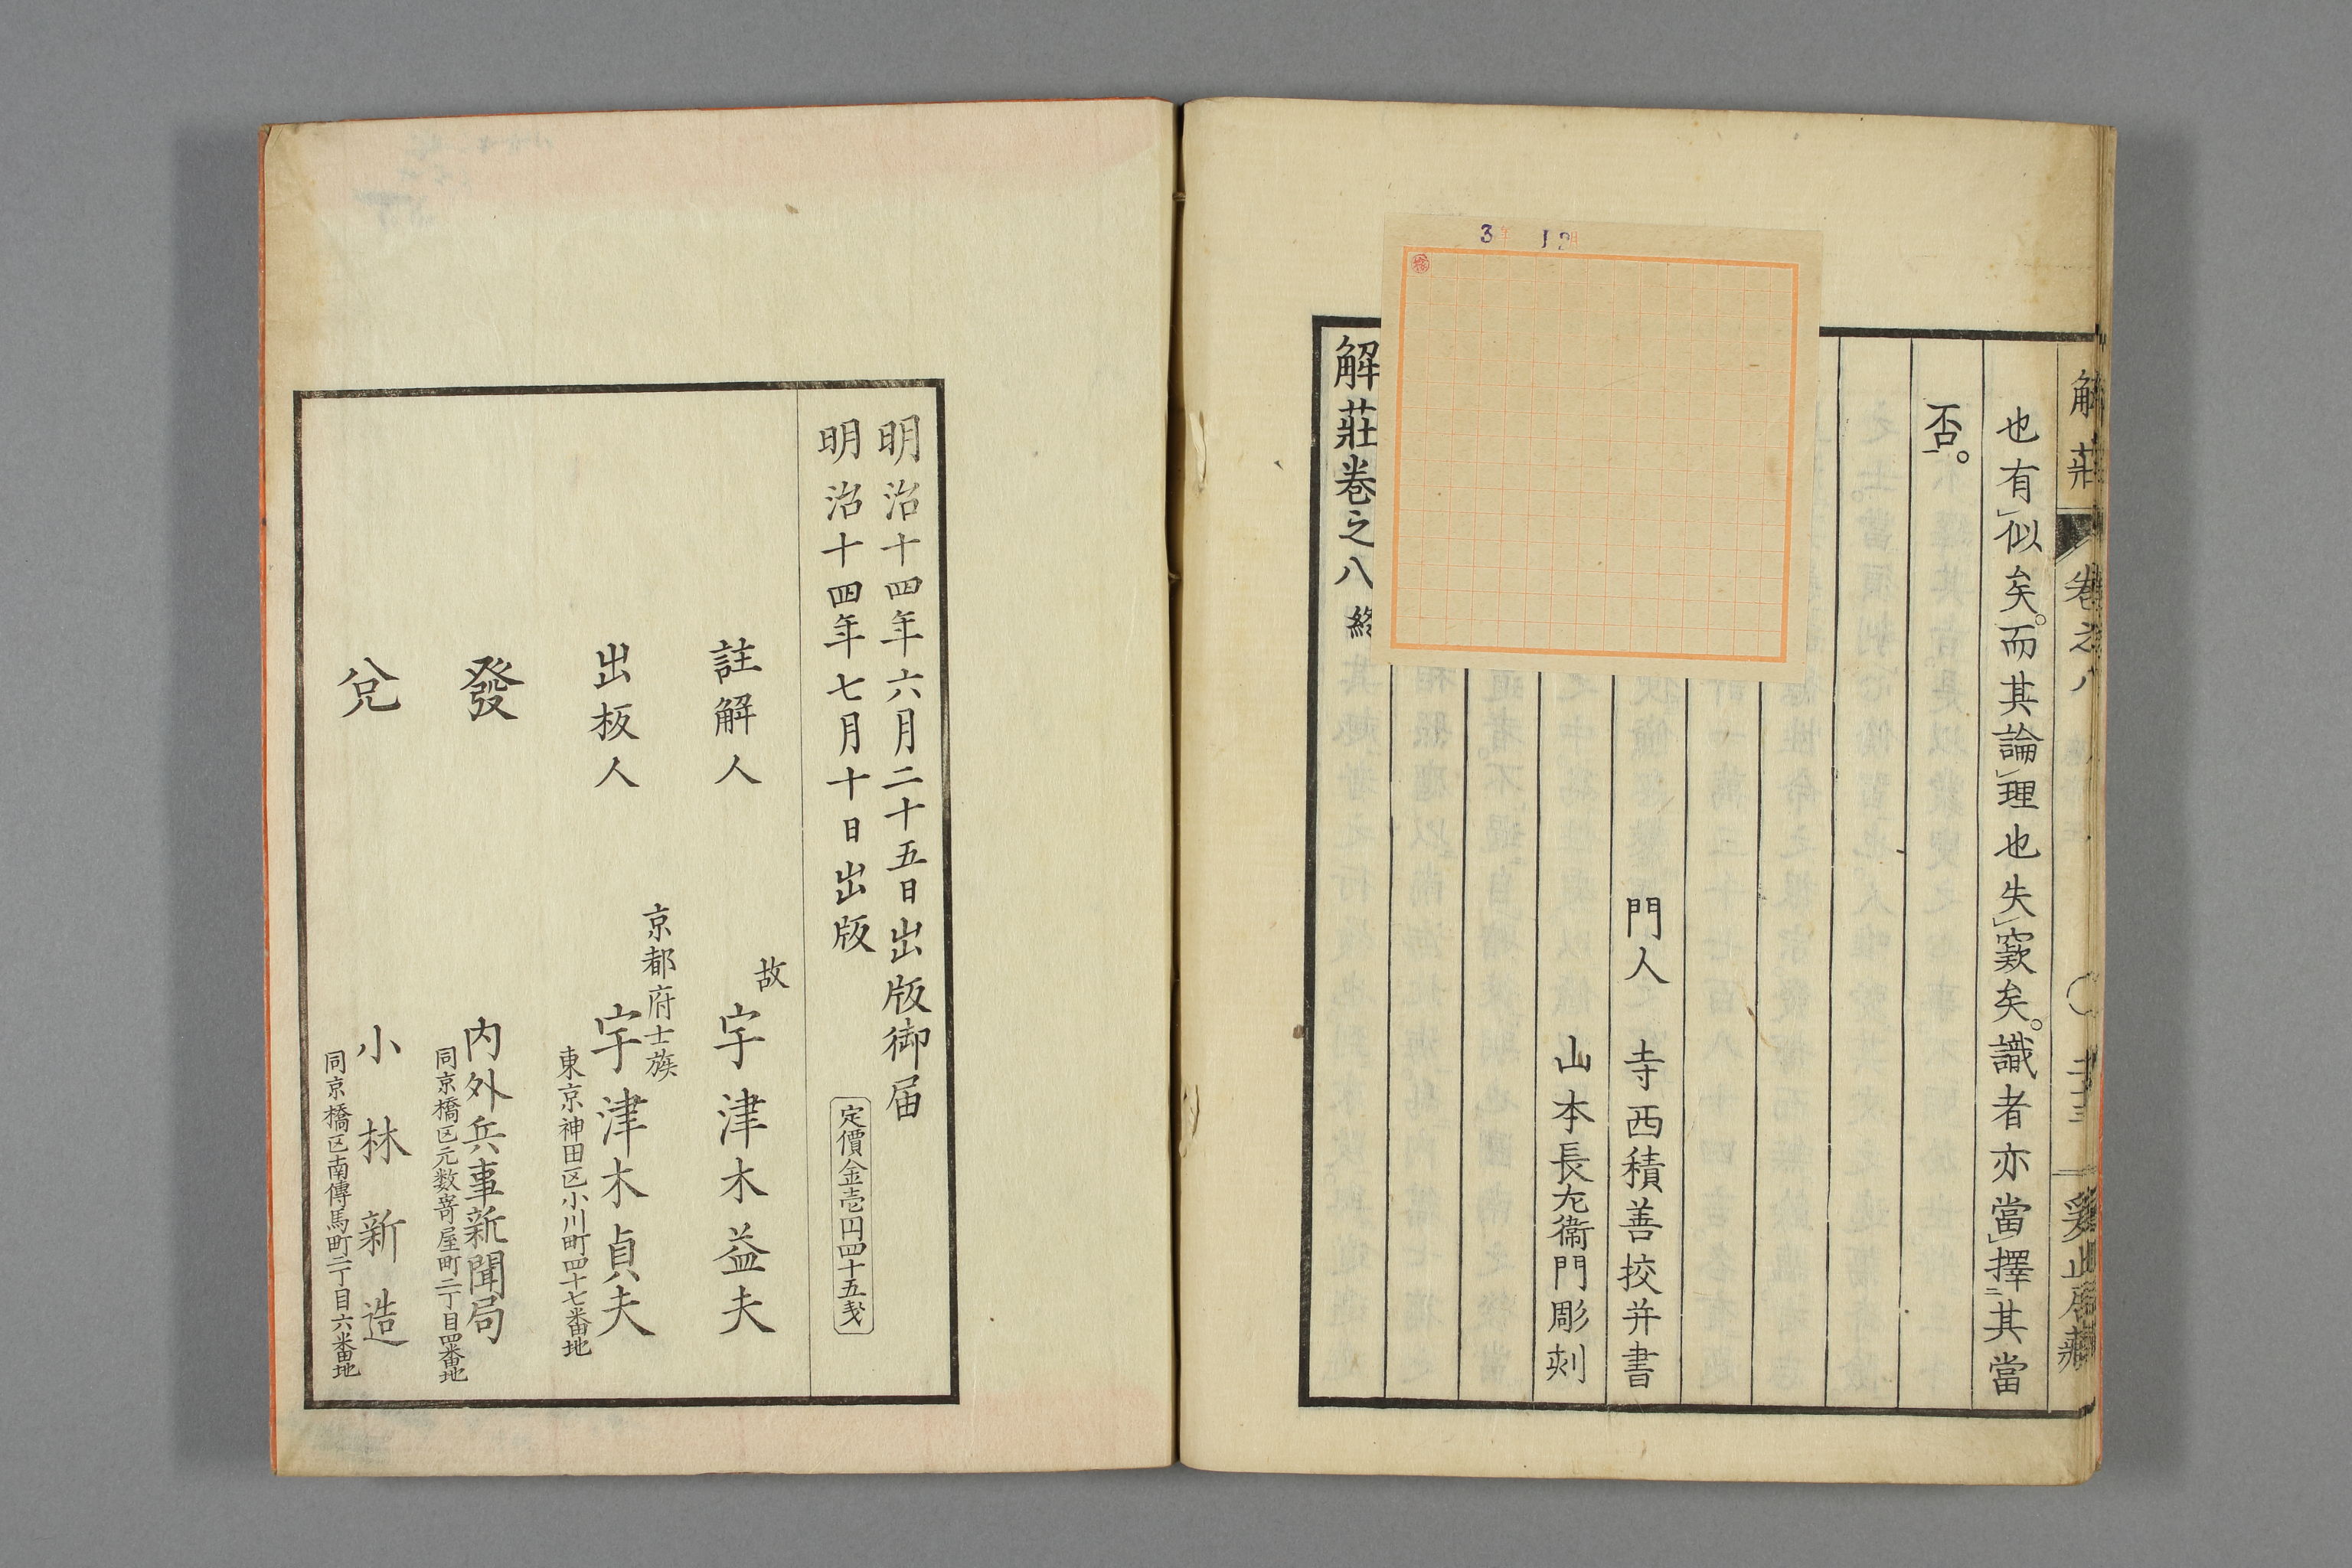 解莊
卷之八
也有似矣。而其論理也失窾矣。識者亦當擇其當
否。
門人 寺西積善挍并書
山本長左衞門彫刻
解莊卷之八 終
3年 12月
明治十四年六月二十五日出版御届
明治十四年七月十日出版
定價金壱円四十五戋
註解人 故 宇津木益夫
出板人 京都府士族 宇津木貞夫
東京神田区小川町四十七番地
發 内外兵事新聞局
同京橋区元数寄屋町二丁目四番地
兌 小林新造
同京橋区南傳馬町二丁目六番地